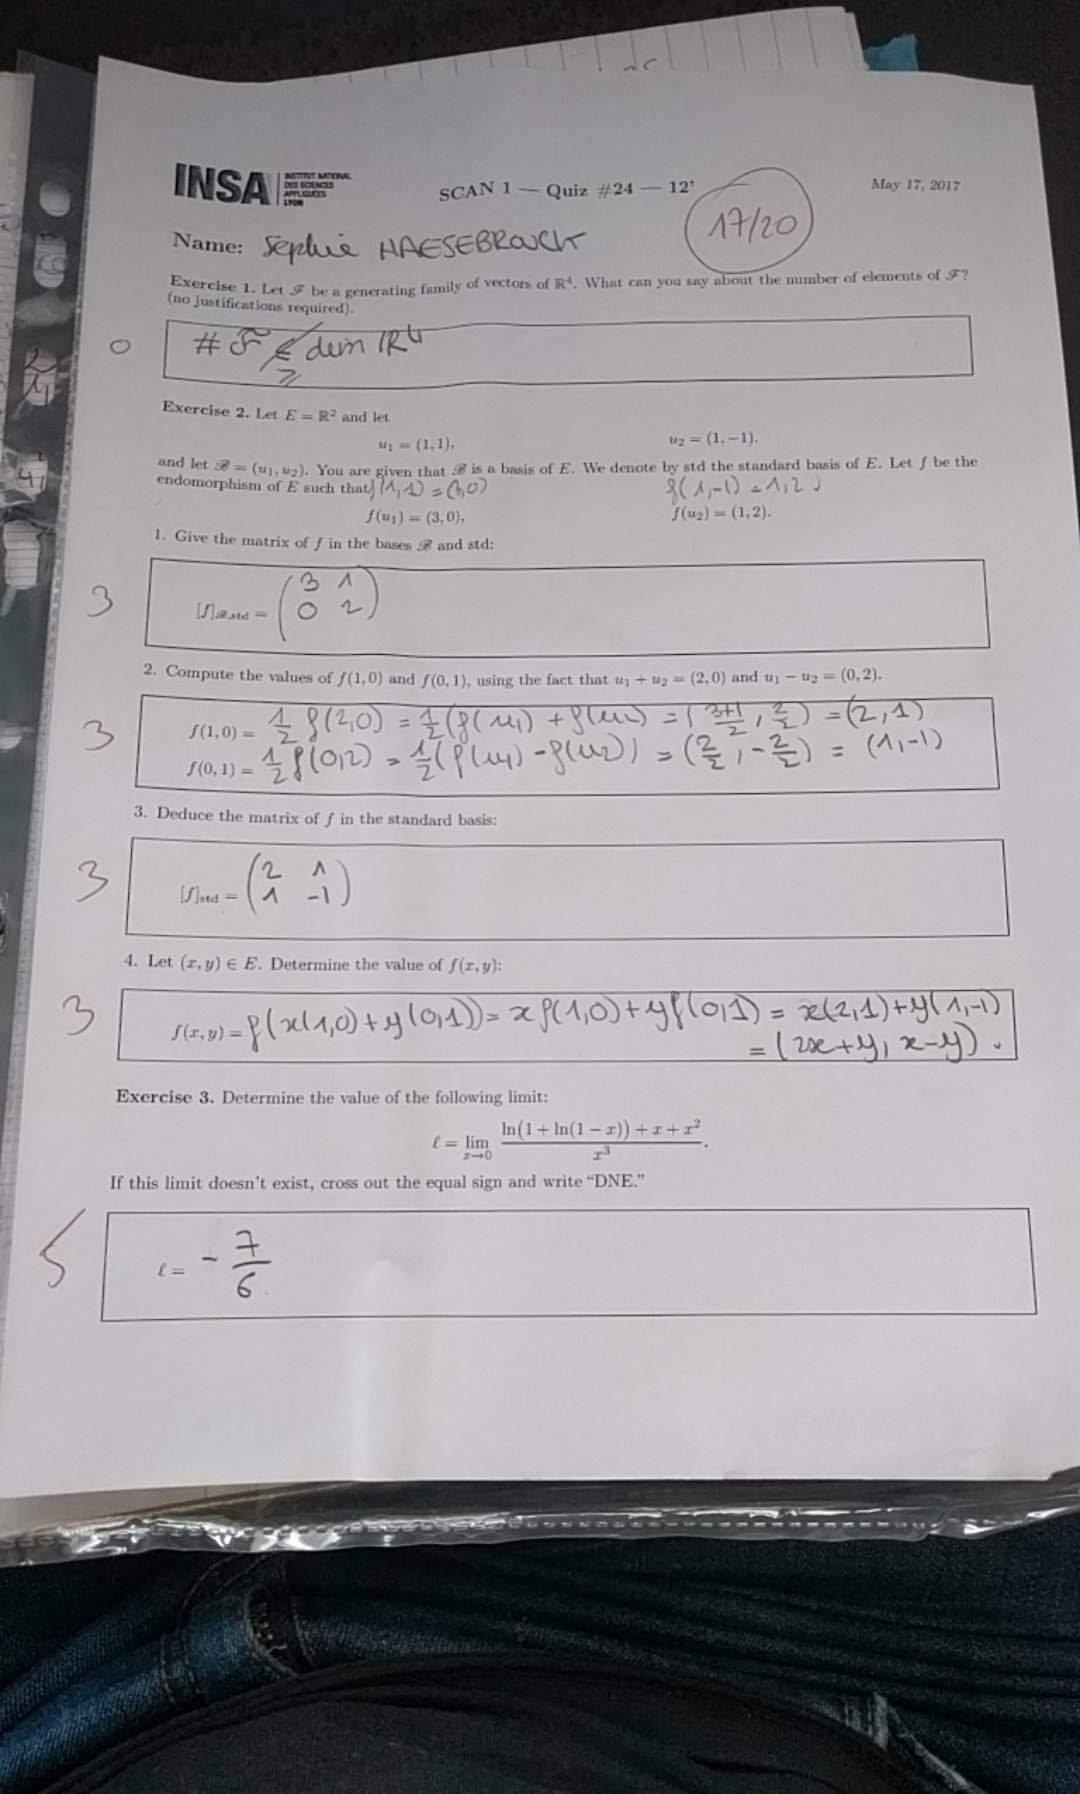 INSA INSTITUT NATIONAL DES SCIENCES APPLIQUÉES LYON
SCAN 1 — Quiz #24 — 12'
May 17, 2017
17/20
Name: Sophie HAESEBROUCK
Exercise 1. Let ℱ be a generating family of vectors of ℝ⁴. What can you say about the number of elements of ℱ?
(no justifications required).
0
# ℱ ≤ dim ℝ⁴
≥
Exercise 2. Let E = ℝ² and let
u₁ = (1, 1), u₂ = (1, −1).
and let ℬ = (u₁, u₂). You are given that ℬ is a basis of E. We denote by std the standard basis of E. Let f be the
endomorphism of E such that f(1,1) = (3,0) f(1,-1) = 1,2)
f(u₁) = (3, 0), f(u₂) = (1, 2).
1. Give the matrix of f in the bases ℬ and std:
3
[f]ℬ,std = (3 1
0 2)
2. Compute the values of f(1, 0) and f(0, 1), using the fact that u₁ + u₂ = (2, 0) and u₁ − u₂ = (0, 2).
3
f(1, 0) = 1/2 f(2,0) = 1/2 (f(u₁) + f(u₂) = (3+1/2, 2/2) = (2,1)
f(0, 1) = 1/2 f(0,2) = 1/2 (f(u₁) - f(u₂)) = (2/2, -2/2) = (1,-1)
3. Deduce the matrix of f in the standard basis:
3
[f]std = (2 1
1 -1)
4. Let (x, y) ∈ E. Determine the value of f(x, y):
3
f(x, y) = f(x(1,0) + y(0,1)) = x f(1,0) + y f(0,1) = x(2,1) + y(1,-1)
= (2x+y, x-y).
Exercise 3. Determine the value of the following limit:
ℓ = lim x→0 ln(1 + ln(1 − x)) + x + x² / x³.
If this limit doesn't exist, cross out the equal sign and write “DNE.”
5
ℓ = - 7/6